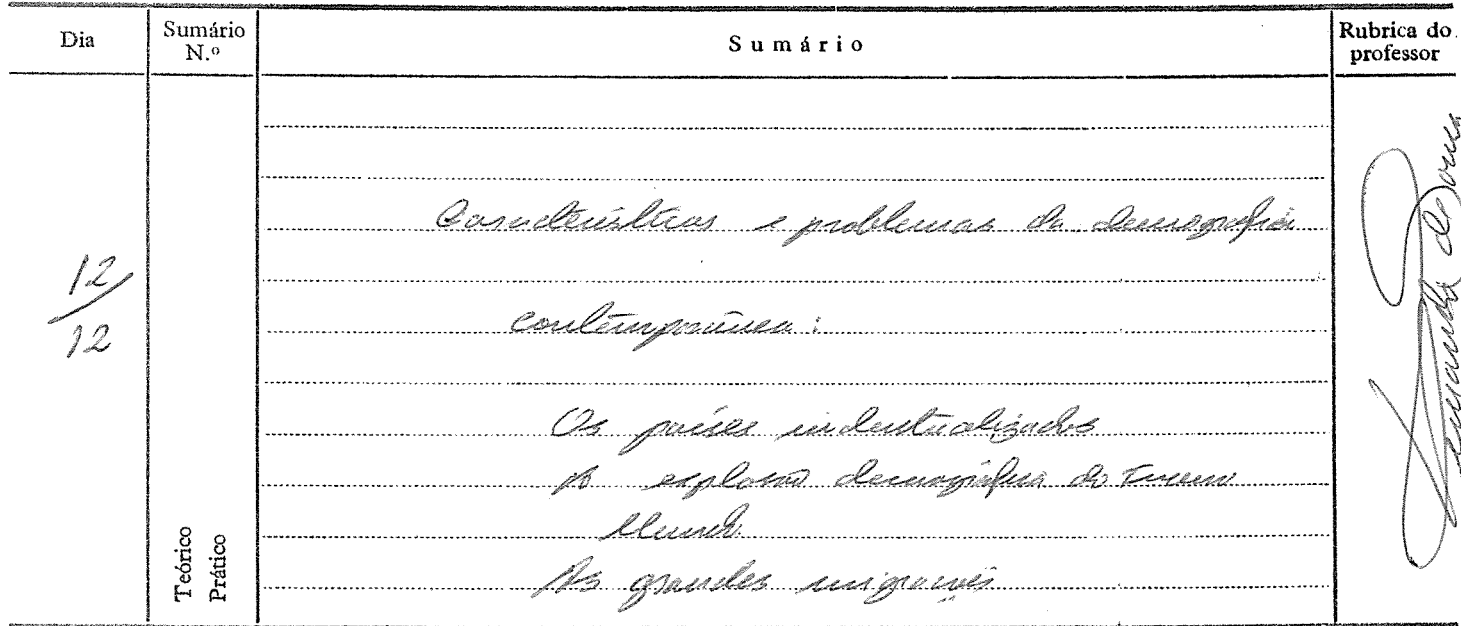 Dia
Sumário N.º
Sumário
Rubrica do professor
12/12
Características e problemas da demografia
contemporânea:
Os países industrializados
A explosão demográfica do Terceiro
Mundo
As grandes migrações
Teórico
Prático